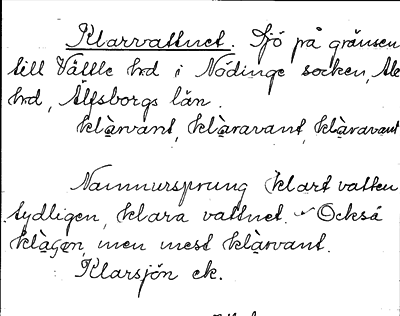 Klarvattnet. Sjö på gränsen
till Vättle hrd i Nödinge socken, Ale
hrd, Älfsborgs län.
klàrvant, klàravant, klàravant
Namnursprung klart vatten
tydligen, klara vattnet. Också
klàgen, men mest klàrvant.
Klarsjön ek.